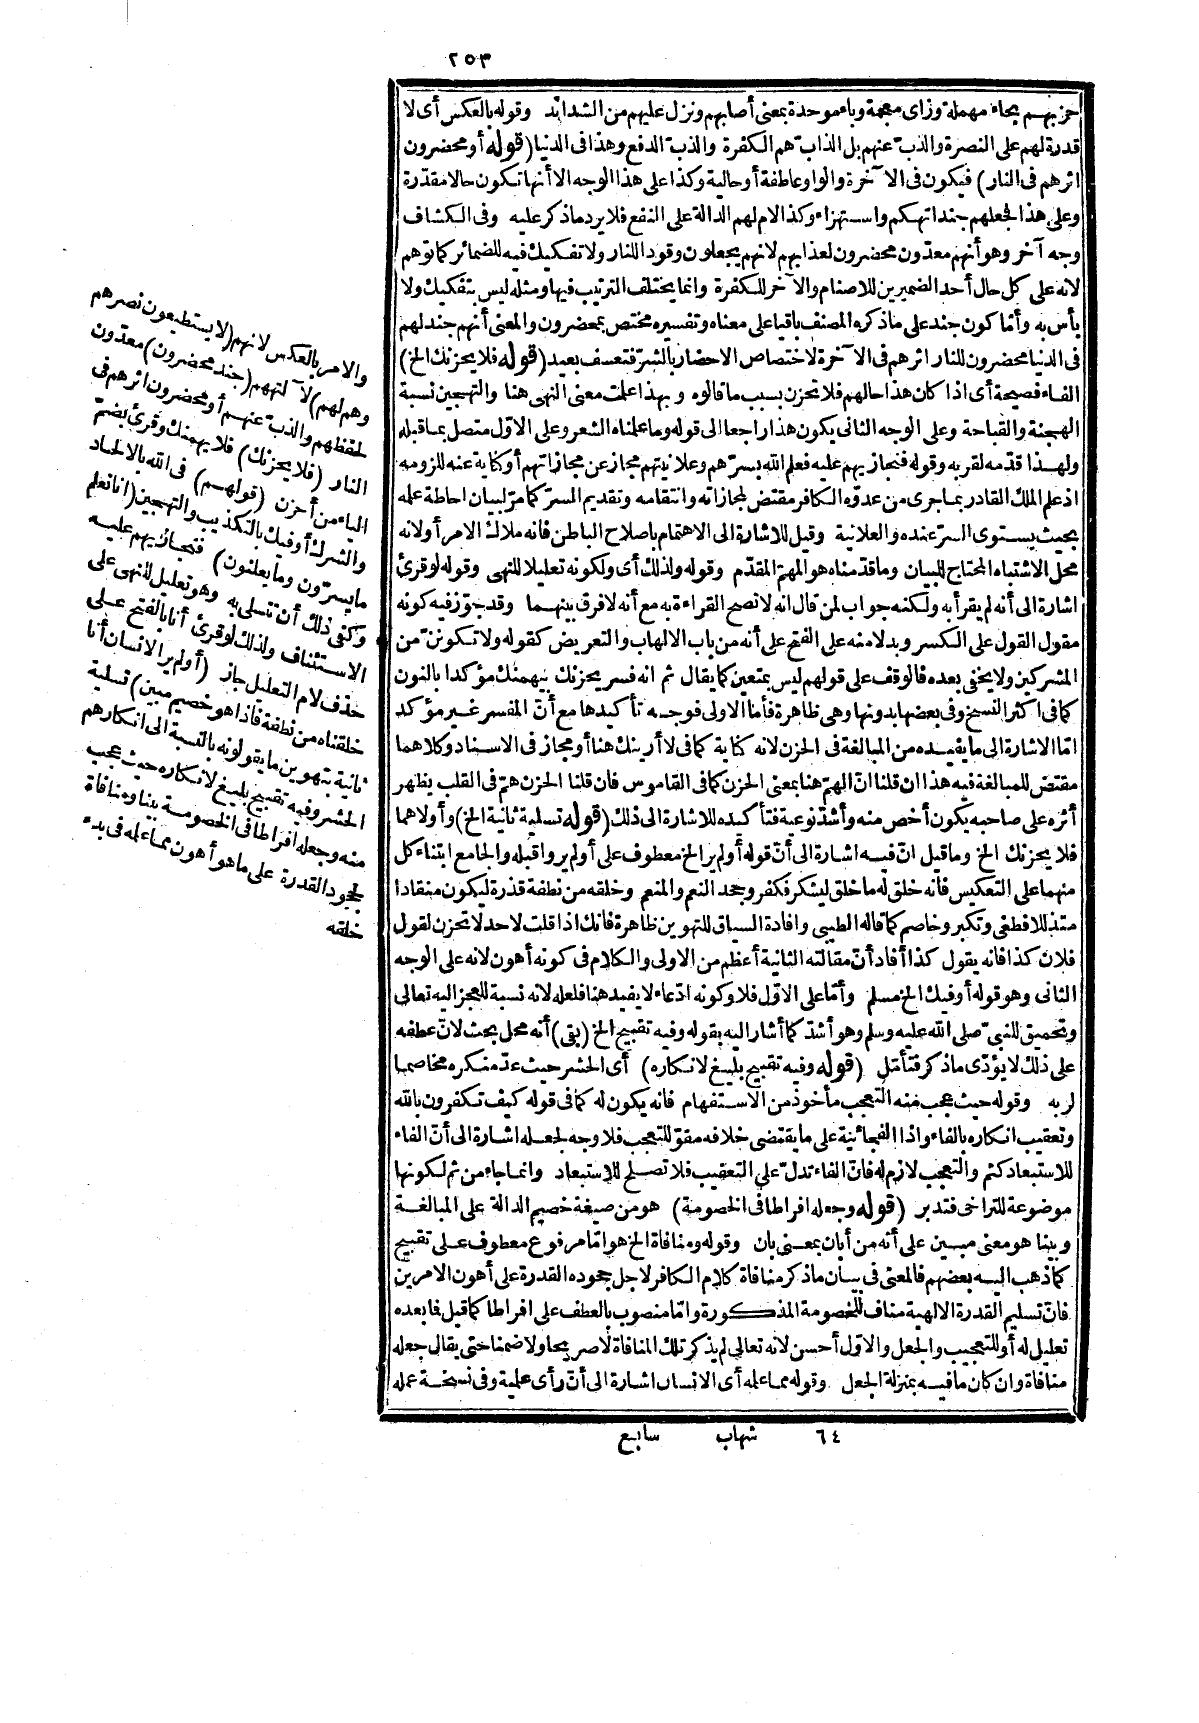 ٢٥٣
حزبهم بحاء مهملة وزاى معجمة وباء موحدة بمعنى أصابهم ونزل عليهم من الشدائد وقوله بالعكس أى لا
قدرة لهم على النصرة والذب عنهم بل الذاب هم الكفرة والذب الدفع وهذا فى الدنيا (قوله أو محضرون
اثرهم فى النار) فيكون فى الآخرة والواو عاطفة أو حالية وكذا على هذا الوجه الا أنها تكون حالا مقدّرة
وعلى هذا فجعلهم جندا تهكم واستهزاء وكذا لام لهم الدالة على النفع فلا يرد ما ذكر عليه وفى الكشاف
وجه آخر وهو أنهم معدّون محضرون لعذابهم لانهم يجعلون وقود اللنار ولا تفكيك فيه للضمائر كما توهم
لانه على كل حال أحد الضميرين للاصنام والآخر للكفرة وانما يختلف الترتيب فيها ومثله ليس بتفكيك ولا
بأس به وأمّا كون جند على ما ذكره المصنف باقيا على معناه وتفسيره مختص بمحضرون والمعنى أنهم جند لهم
فى الدنيا محضرون للنار اثرهم فى الآخرة لاختصاص الاحضار بالشرّ فتعسف بعيد (قوله فلا يحزنك الخ)
الفاء فصيحة أى اذا كان هذا حالهم فلا تحزن بسبب ما قالوه وبهذا علمت معنى النهى هنا والتهجين نسبة
الهجنة والقباحة وعلى الوجه الثانى يكون هذا راجعا الى قوله وما علمناه الشعر وعلى الاوّل متصل بما قبله
ولهذا قدّمه لقربه وقوله فنجازيهم عليه فعلم الله بسرّهم وعلانيتهم مجاز عن مجازاتهم أو كناية عنه للزومه
اذ علم الملك القادر بما جرى من عدوّه الكافر مقتض لمجازاته وانتقامه وتقديم السرّ كما مرّ لبيان احاطة علمه
بحيث يستوى السرّ عنده والعلانية وقيل للاشارة الى الاهتمام باصلاح الباطن فانه ملاك الامر أو لانه
محل الاشتباه المحتاج للبيان وما قدّمناه هو المهمّ المقدّم وقوله ولذلك أى ولكونه تعليلا للنهى وقوله لو قرئ
اشارة الى أنه لم يقرأ به ولكنه جواب لمن قال انه لا تصح القراءة به مع أنه لا فرق بينهما وقد جوّز فيه كونه
مقول القول على الكسر وبدلا منه على الفتح على أنه من باب الالهاب والتعريض كقوله ولا تكوننّ من
المشركين ولا يخفى بعده فالوقف على قولهم ليس بمتعين كما يقال ثم انه فسر يحزنك بيهمنك مؤكدا بالنون
كما فى اكثر النسخ وفى بعضها بدونها وهى ظاهرة فأما الاولى فوجه تأكيدها مع أنّ المفسر غير مؤكد
امّا الاشارة الى ما يفيده من المبالغة فى الحزن لانه كناية كما فى لا أرينك هنا أو مجاز فى الاسناد وكلاهما
مقتض للمبالغة فيه هذا ان قلنا انّ الهمّ هنا بمعنى الحزن كما فى القاموس فان قلنا الحزن همّ فى القلب يظهر
أثره على صاحبه يكون أخص منه وأشدّ نوعية فتأكيده للاشارة الى ذلك (قوله تسلية ثانية الخ) وأولاهما
فلا يحزنك الخ وما قيل انّ فيه اشارة الى أنّ قوله أولم ير الخ معطوف على أولم يروا قبله والجامع ابتناء كل
منهما على التعكيس فانه خلق له ما خلق ليشكر فكفر وجحد النعم والمنعم وخلقه من نطفة قذرة ليكون منقادا
متذللا فطغى وتكبر وخاصم كما قاله الطيبى وافادة السياق للتهوين ظاهرة فانك اذا قلت لاحد لا تحزن لقول
فلان كذا فانه يقول كذا أفاد أنّ مقالته الثانية أعظم من الاولى والكلام فى كونه أهون لانه على الوجه
الثانى وهو قوله أو فيك الخ مسلم وأمّا على الاوّل فلا وكونه ادّعاء لا يفيد هنا فلعله لانه نسبة للعجز اليه تعالى
وتحميق للنبىّ صلى الله عليه وسلم وهو أشدّ كما أشار اليه بقوله وفيه تقبيح الخ (بقى) أنه محل بحث لانّ عطفه
على ذلك لا يؤدّى ما ذكر فتأمّل (قوله وفيه تقبيح بليغ لانكاره) أى الحشر حيث عدّ منكره مخاصما
لربه وقوله حيث عجب منه التعجب مأخوذ من الاستفهام فانه يكون له كما فى قوله كيف تكفرون بالله
وتعقيب انكاره بالفاء واذا الفجائية على ما يقتضى خلافه مقوّ للتعجب فلا وجه لجعله اشارة الى أنّ الفاء
للاستبعاد كثم والتعجب لازم له فانّ الفاء تدلّ على التعقيب فلا تصلح للاستبعاد وانما جاء من ثم لكونها
موضوعة للتراخى فتدبر (قوله وجعله افراطا فى الخصومة) هو من صيغة خصيم الدالة على المبالغة
وبينا هو معنى مبين على أنه من أبان بمعنى بان وقوله ومنافاة الخ هو امّا مرفوع معطوف على تقبيح
كما ذهب اليه بعضهم فالمعنى فى بيان ما ذكر منافاة كلام الكافر لاجل جحوده القدرة على أهون الامرين
فانّ تسليم القدرة الالهية مناف للخصومة المذكورة وامّا منصوب بالعطف على افراطا كما قيل فما بعده
تعليل له أو للتعجيب والجعل والاوّل أحسن لانه تعالى لم يذكر تلك المنافاة لا صريحا ولا ضمنا حتى يقال جعله
منافاة وان كان ما فيه بمنزلة الجعل وقوله مما علمه أى الانسان اشارة الى أنّ رأى علمية وفى نسخة عمله
والامر بالعكس لانهم (لا يستطيعون نصرهم
وهم لهم) لآلهتهم (جند محضرون) معدّون
لحفظهم والذب عنهم أو محضرون اثرهم فى
النار (فلا يحزنك) فلا يهمنك وقرئ بضمّ
الياء من أحزن (قولهم) فى الله بالالحاد
والشرك أو فيك بالتكذيب والتهجين (انا نعلم
ما يسرّون وما يعلنون) فنجازيهم عليه
وكفى ذلك أن تتسلى به وهو تعليل للنهى على
الاستئناف ولذلك لو قرئ أنا بالفتح على
حذف لام التعليل جاز (أولم ير الانسان أنا
خلقناه من نطفة فاذا هو خصيم مبين) تسلية
ثانية بتهوين ما يقولونه بالنسبة الى انكارهم
الحشر وفيه تقبيح بليغ لانكاره حيث عجب
منه وجعله افراطا فى الخصومة بينا ومنافاة
لجحود القدرة على ما هو أهون مما علمه فى بدء
خلقه
٦٤ شهاب سابع